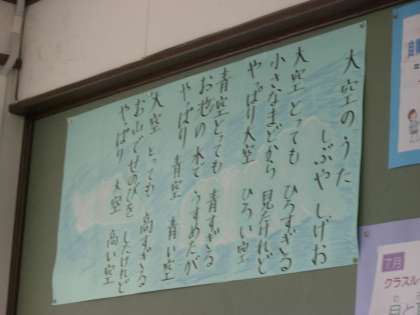 大空のうた
しぶや しげお
大空とっても ひろすぎる
小さなまどから 見たけれど
やっぱり大空 ひろい空
青空とっても 青すぎる
お池の水で うすめたが
やっぱり 青空 青い空
大空 とっても 高すぎる
お山でせのびを したけれど
やっぱり 大空 高い空
7月
クラスル